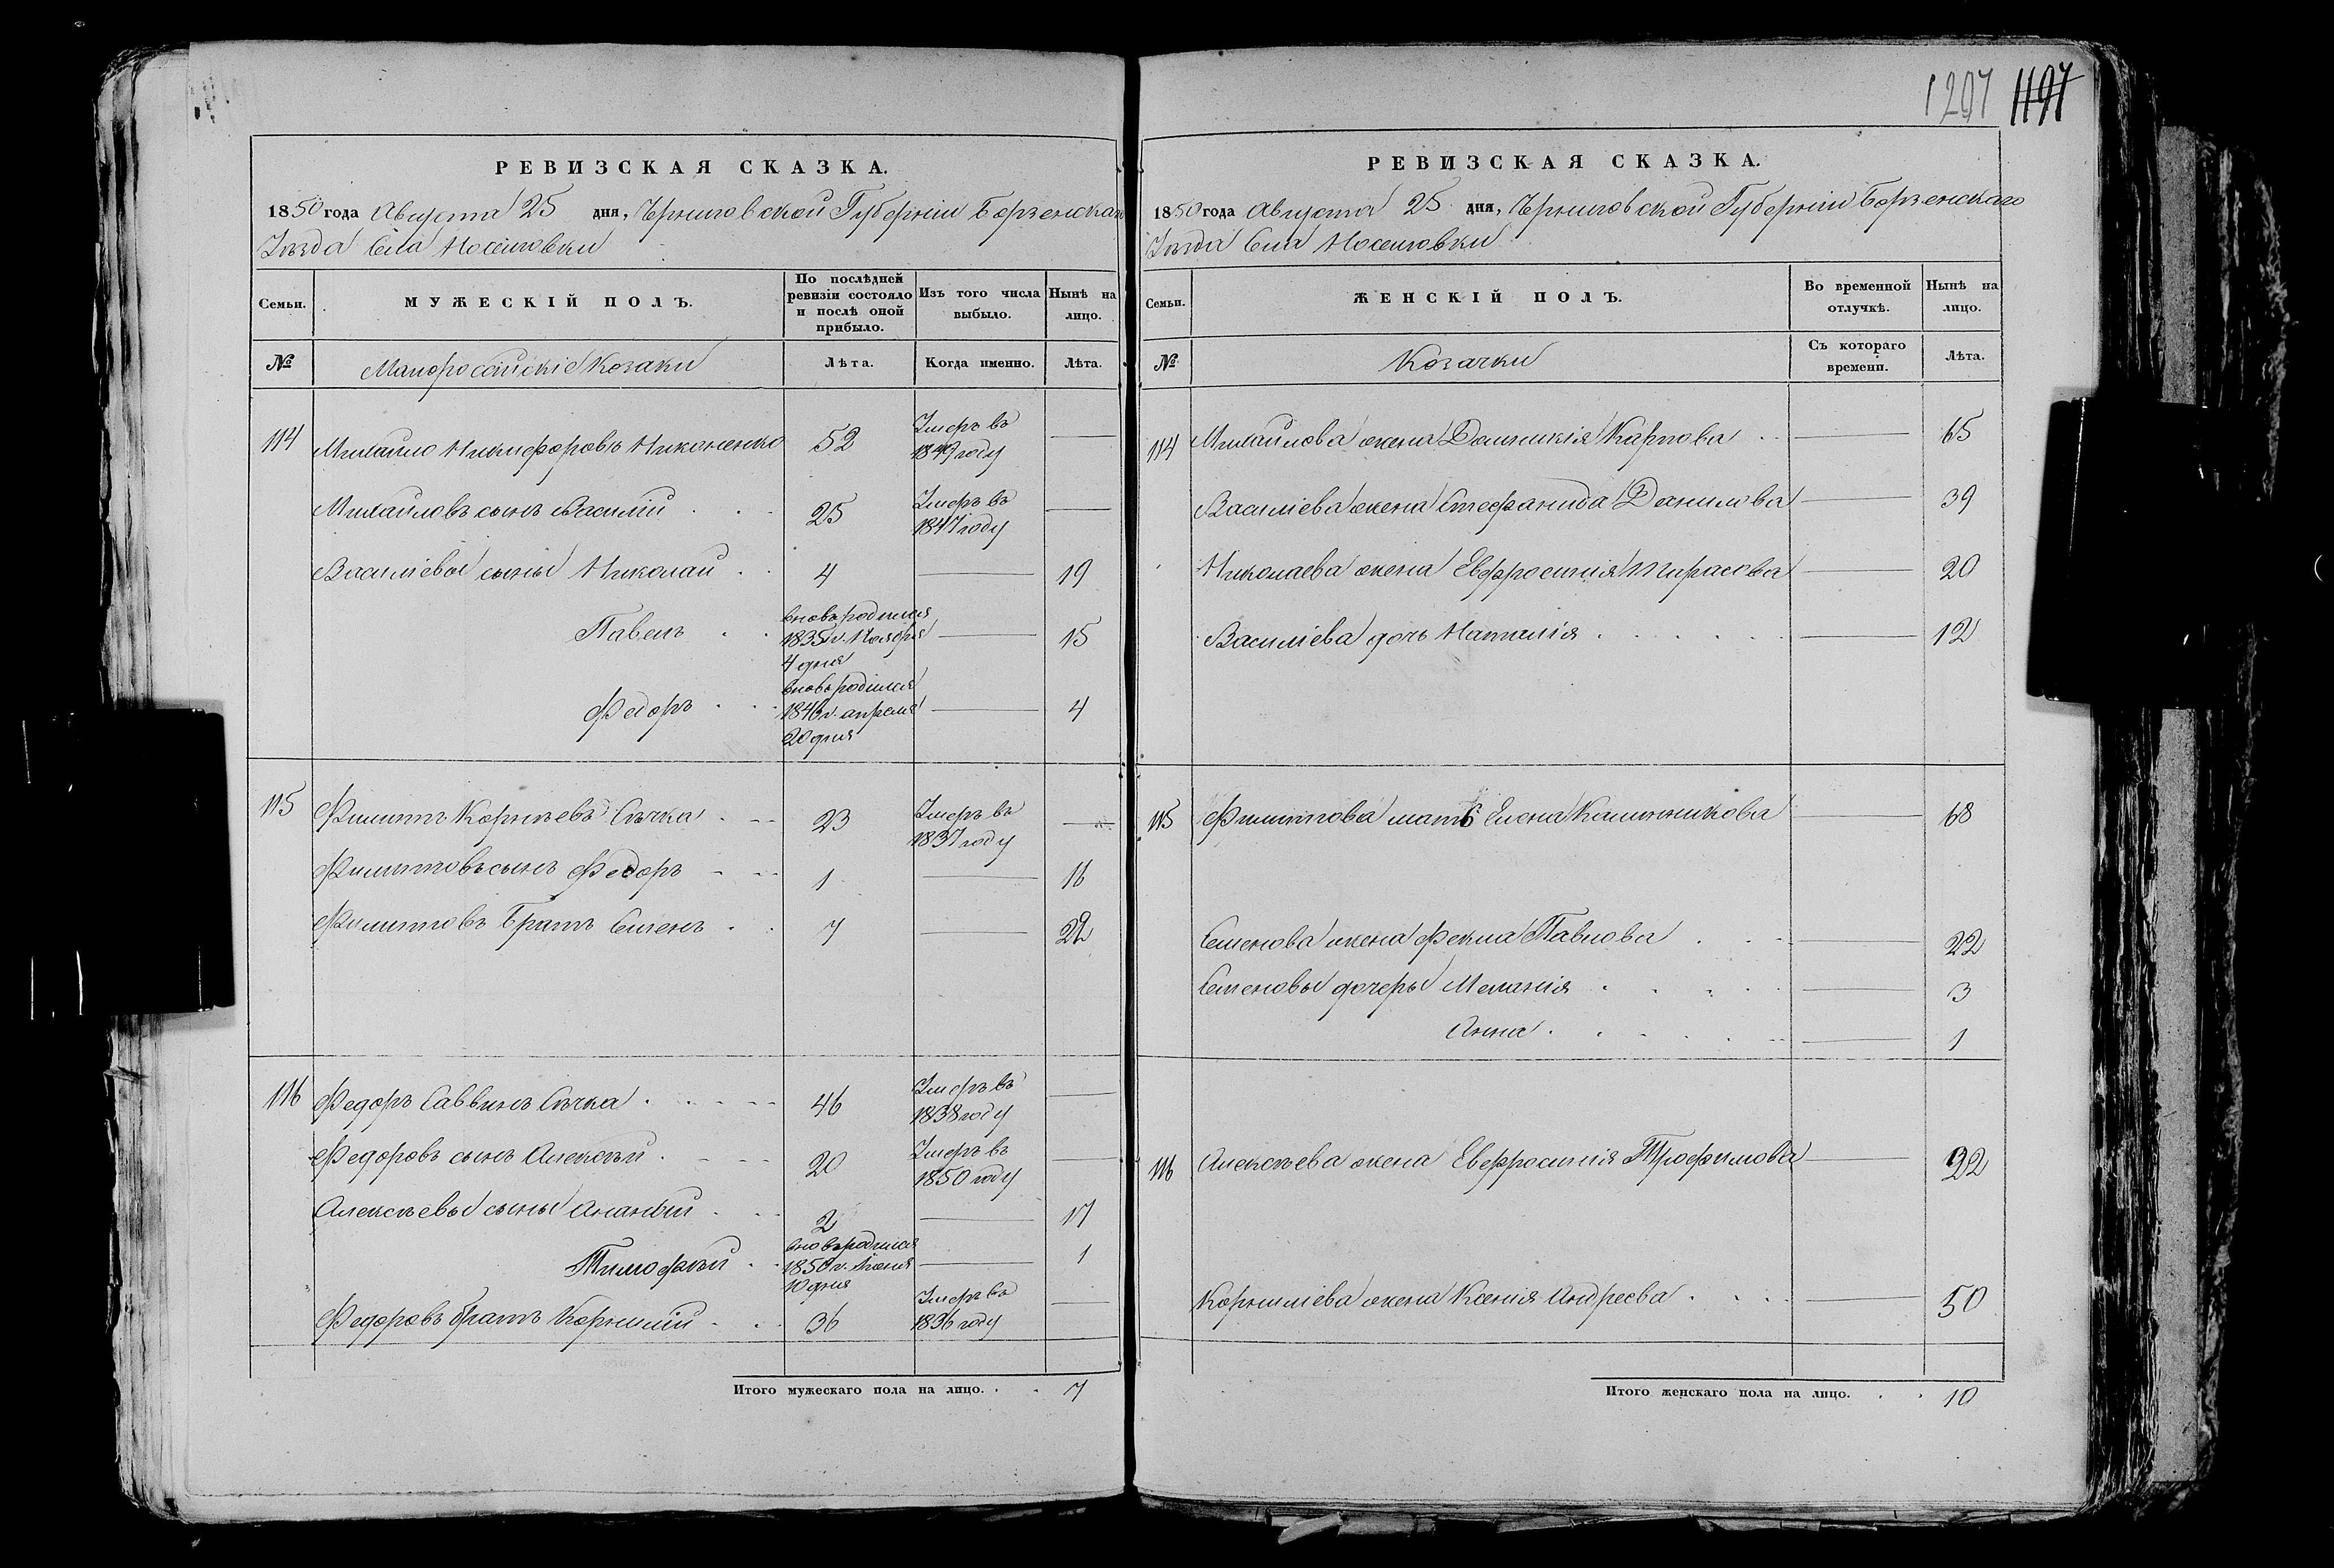 1207 1197
РЕВИЗСКАЯ СКАЗКА.
1850 года Августа 25 дня, Черниговской Губерніи Борзенскаго
Уезда Села
Семьи.
МУЖЕСКІЙ ПОЛЪ.
По послѣдней
ревизіи состояло
и послѣ оной
прибыло.
Изъ того числа
выбыло.
Нынѣ на
лицо.
№
Малороссійскіе Козаки
Лѣта.
Когда именно.
Лѣта.
114 Михайло Никифоровъ Никоненко 52 Умеръ въ
1849 году
Михайловъ сынъ Василій 25 Умеръ въ
1847 году
Василіевы сыны Николай 4 19
Павелъ вновь родился
1835 г. Ноября
4 дня 15
Федоръ вновь родился
1846 г. апреля
20 дня 4
115 Филиппъ Корнѣевъ Сѣчка 23 Умеръ въ
1837 году
Филипповъ сынъ Федоръ 1 16
Филипповъ братъ Семенъ 7 22
116 Федоръ Саввинъ Сѣчка 46 Умеръ въ
1838 году
Федоровъ сынъ Алексѣй 20 Умеръ въ
1850 году
Алексѣевы сыны Ананій 2 17
Тимофѣй вновь родился
1850 г.
10 дня 1
Федоровъ братъ Корнилій 36 Умеръ въ
1836 году
Итого мужескаго пола на лицо. 7
РЕВИЗСКАЯ СКАЗКА.
1850 года Августа 25 дня, Черниговской Губерніи Борзенскаго
Уезда Села
Семьи.
ЖЕНСКІЙ ПОЛЪ.
Во временной
отлучкѣ.
Нынѣ на
лицо.
№
Козачки
Съ котораго
времени.
Лѣта.
114 Михайлова жена Домникія Карпова 65
Василіева жена Стефанида Данилова 39
Николаева жена Евфросинія 20
Василіева дочь Наталія 12
115 Филиппова мать Елена Калинникова 68
Семенова жена Фекла Павлова 22
Семеновы дочеры Меланія 3
Анна 1
116 Алексѣева жена Евфросинія Трофимова 92
Корниліева жена Ксенія Андреева 50
Итого женскаго пола на лицо. 10